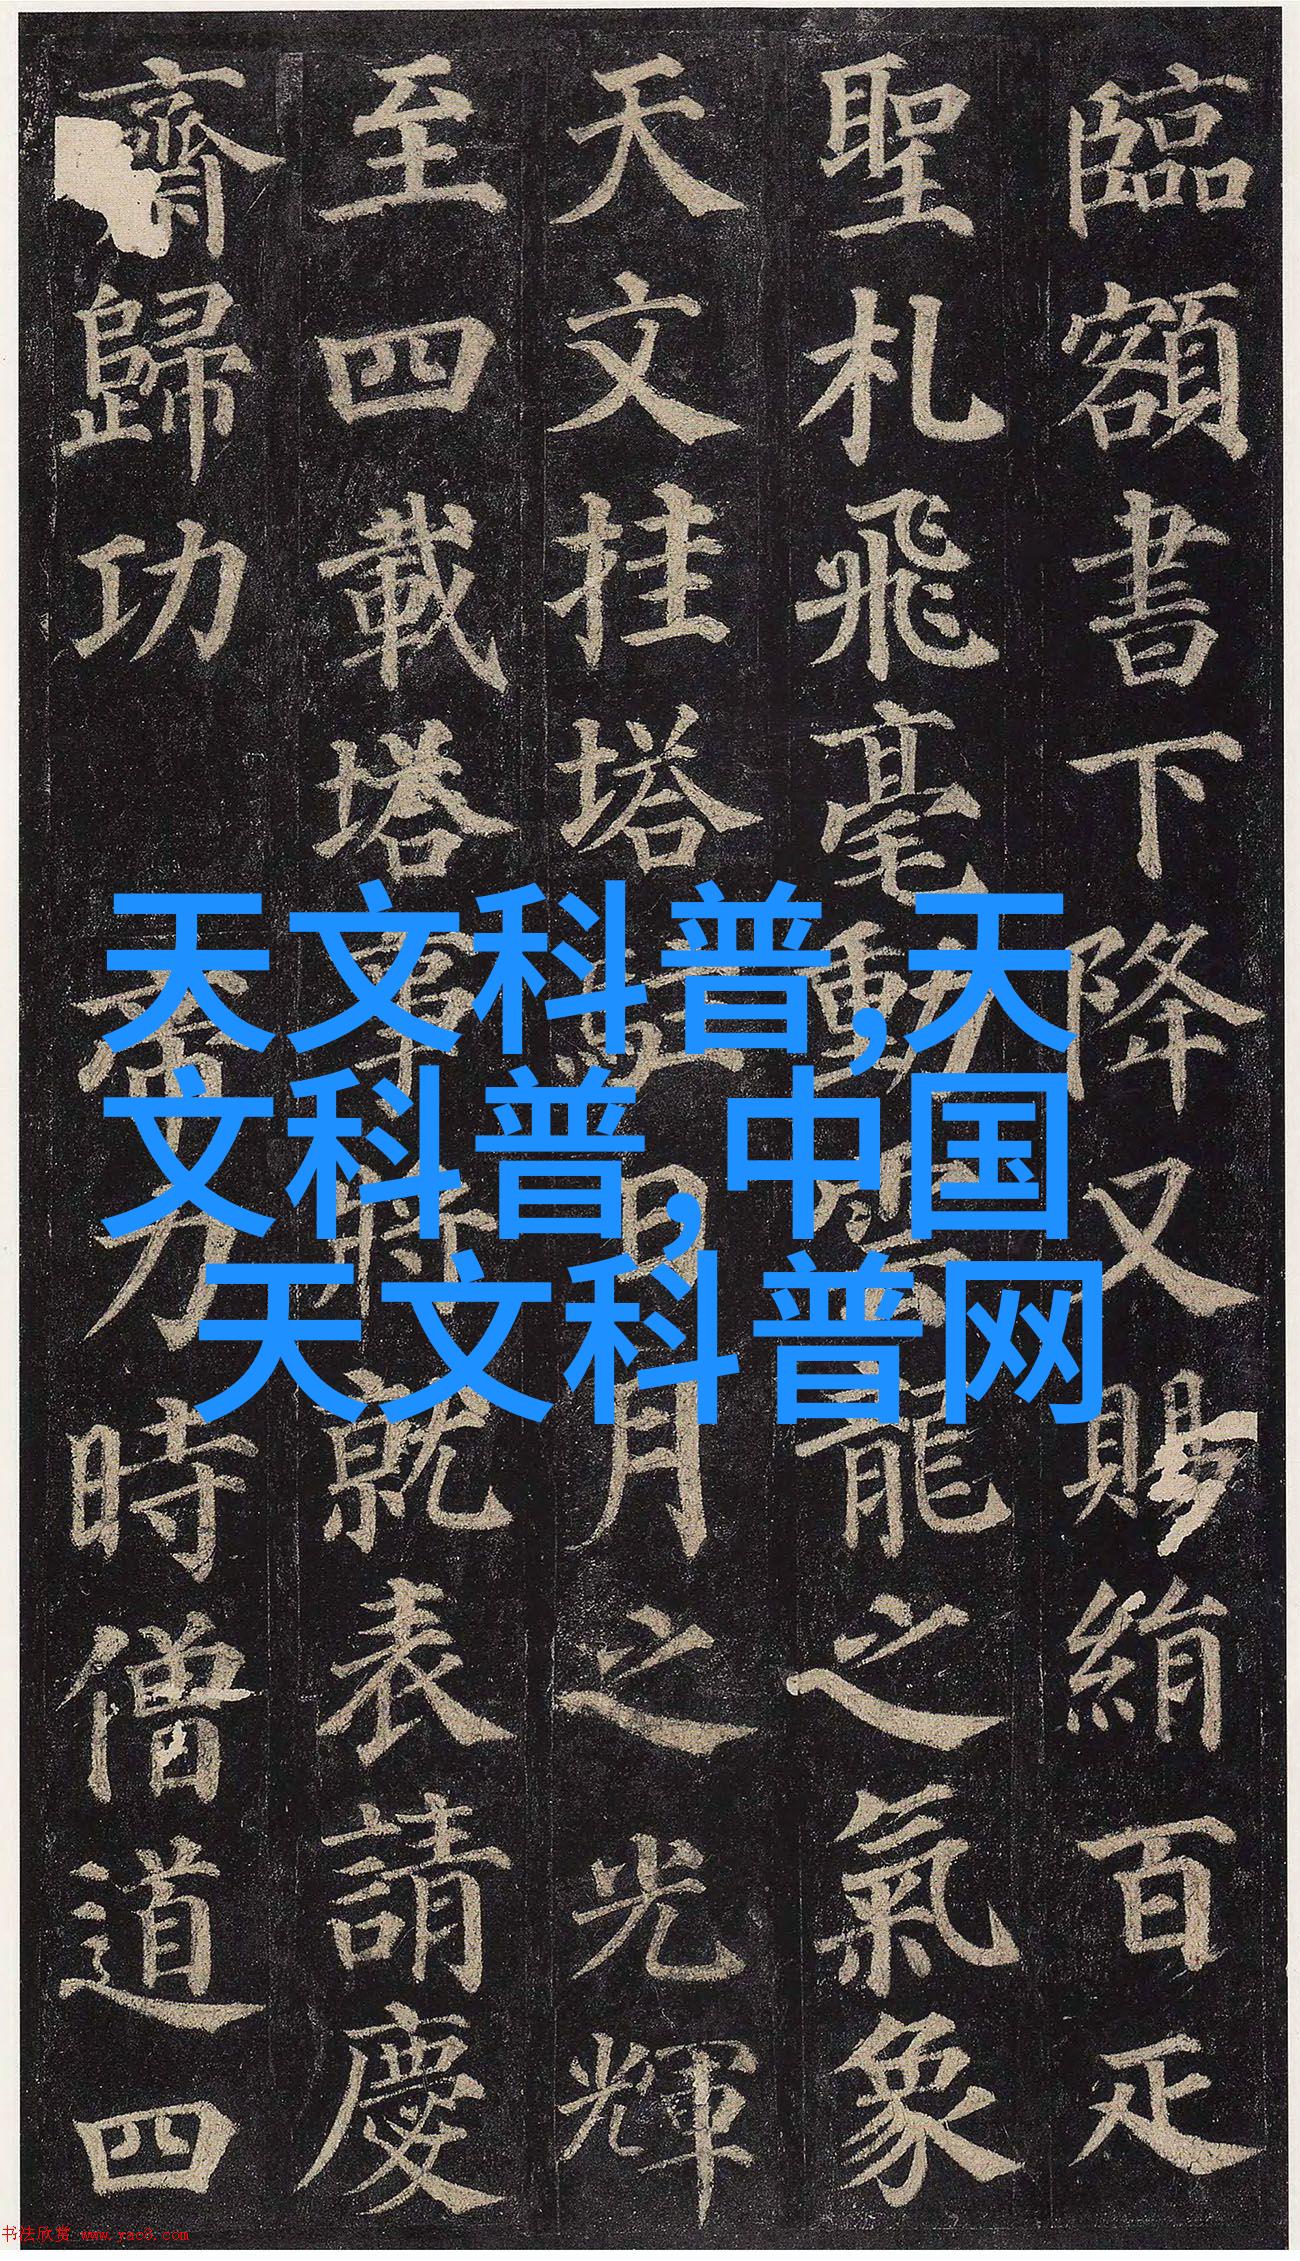 臨額書下降又賜絹百疋
聖札飛毫動雲龍之氣象
天文挂塔駐日月之光輝
至四載塔事將就表請慶
齋歸功 帝力時僧道四
天文科普,天
文科普,中国
天文科普网
书法欣赏 www.yac8.com